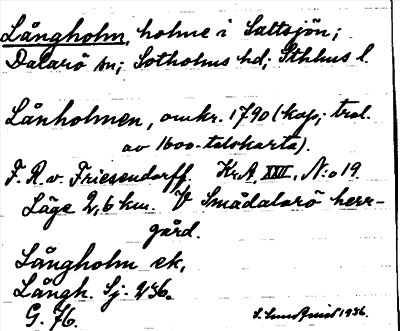 Långholm, holme i Saltsjön;
Dalarö sn; Sotholms hd; Sthlms l.
Lånholmen, omkr. 1790 (kop; trol.
av 1600-talskarta).
F. R. v. Friesendorff. Kr.A. XXII, N:o 19.
Läge 2,6 km. V Smådalarö herr-
gård.
Långholm ek,
Långh. Sj. 1/56.
G. 76.
S. Lundqvist 1936.